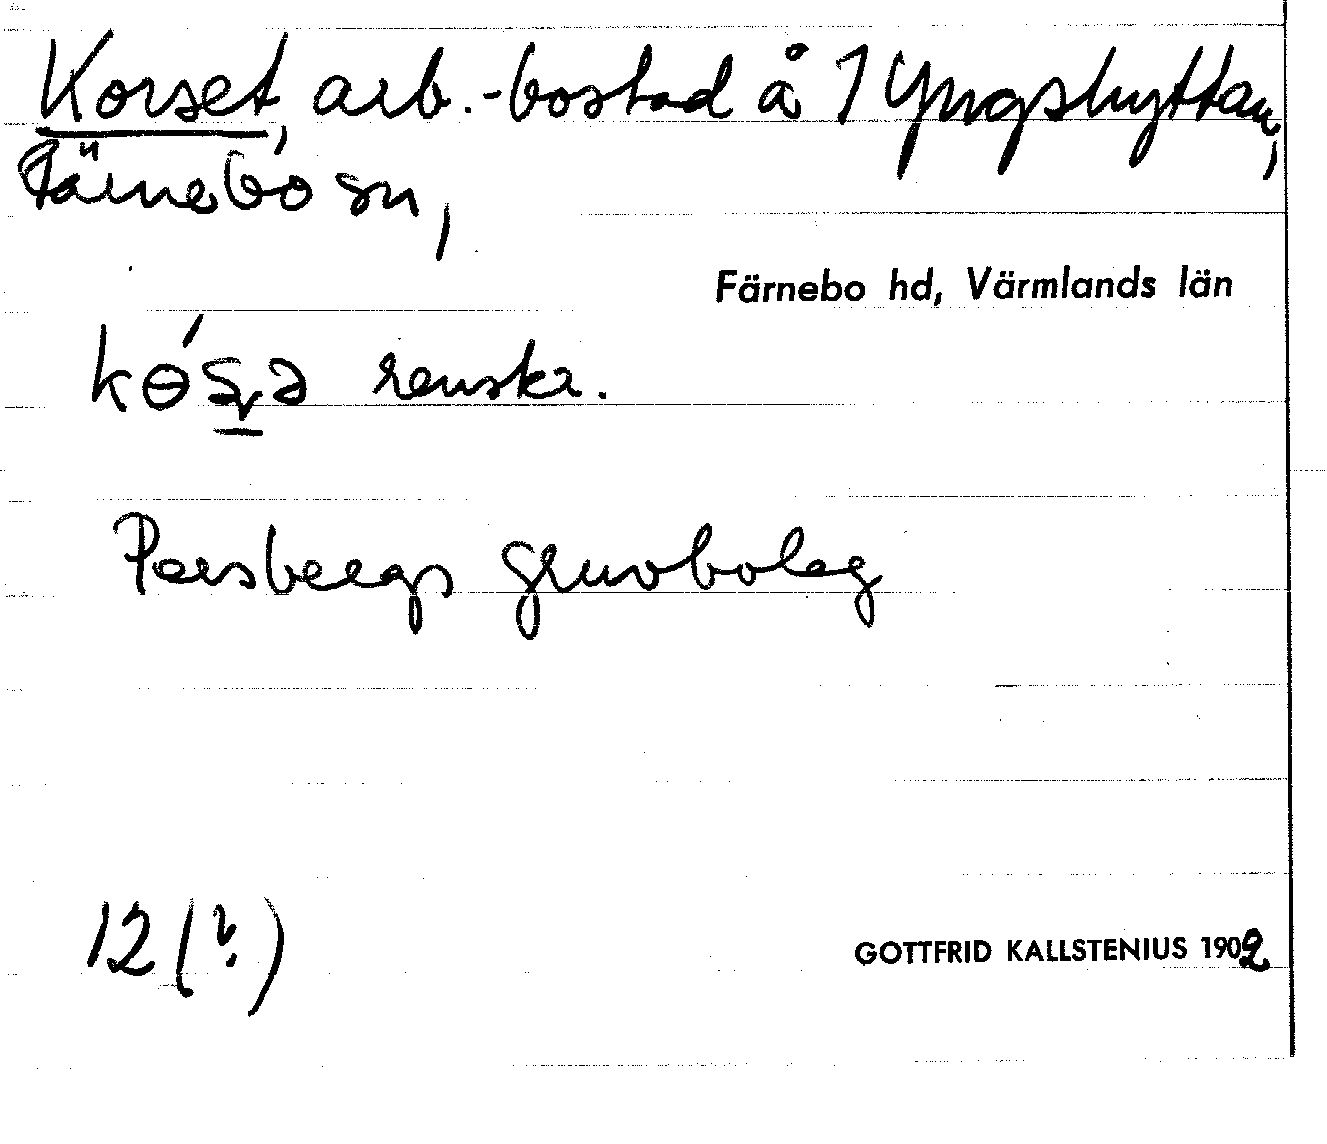 Korset, arb.-bostad å 1 Yngshyttan,
Färnebo sn,
Färnebo hd, Värmlands län
renskr.
Persbergs gruvbolag
12 (?)
GOTTFRID KALLSTENIUS 1902